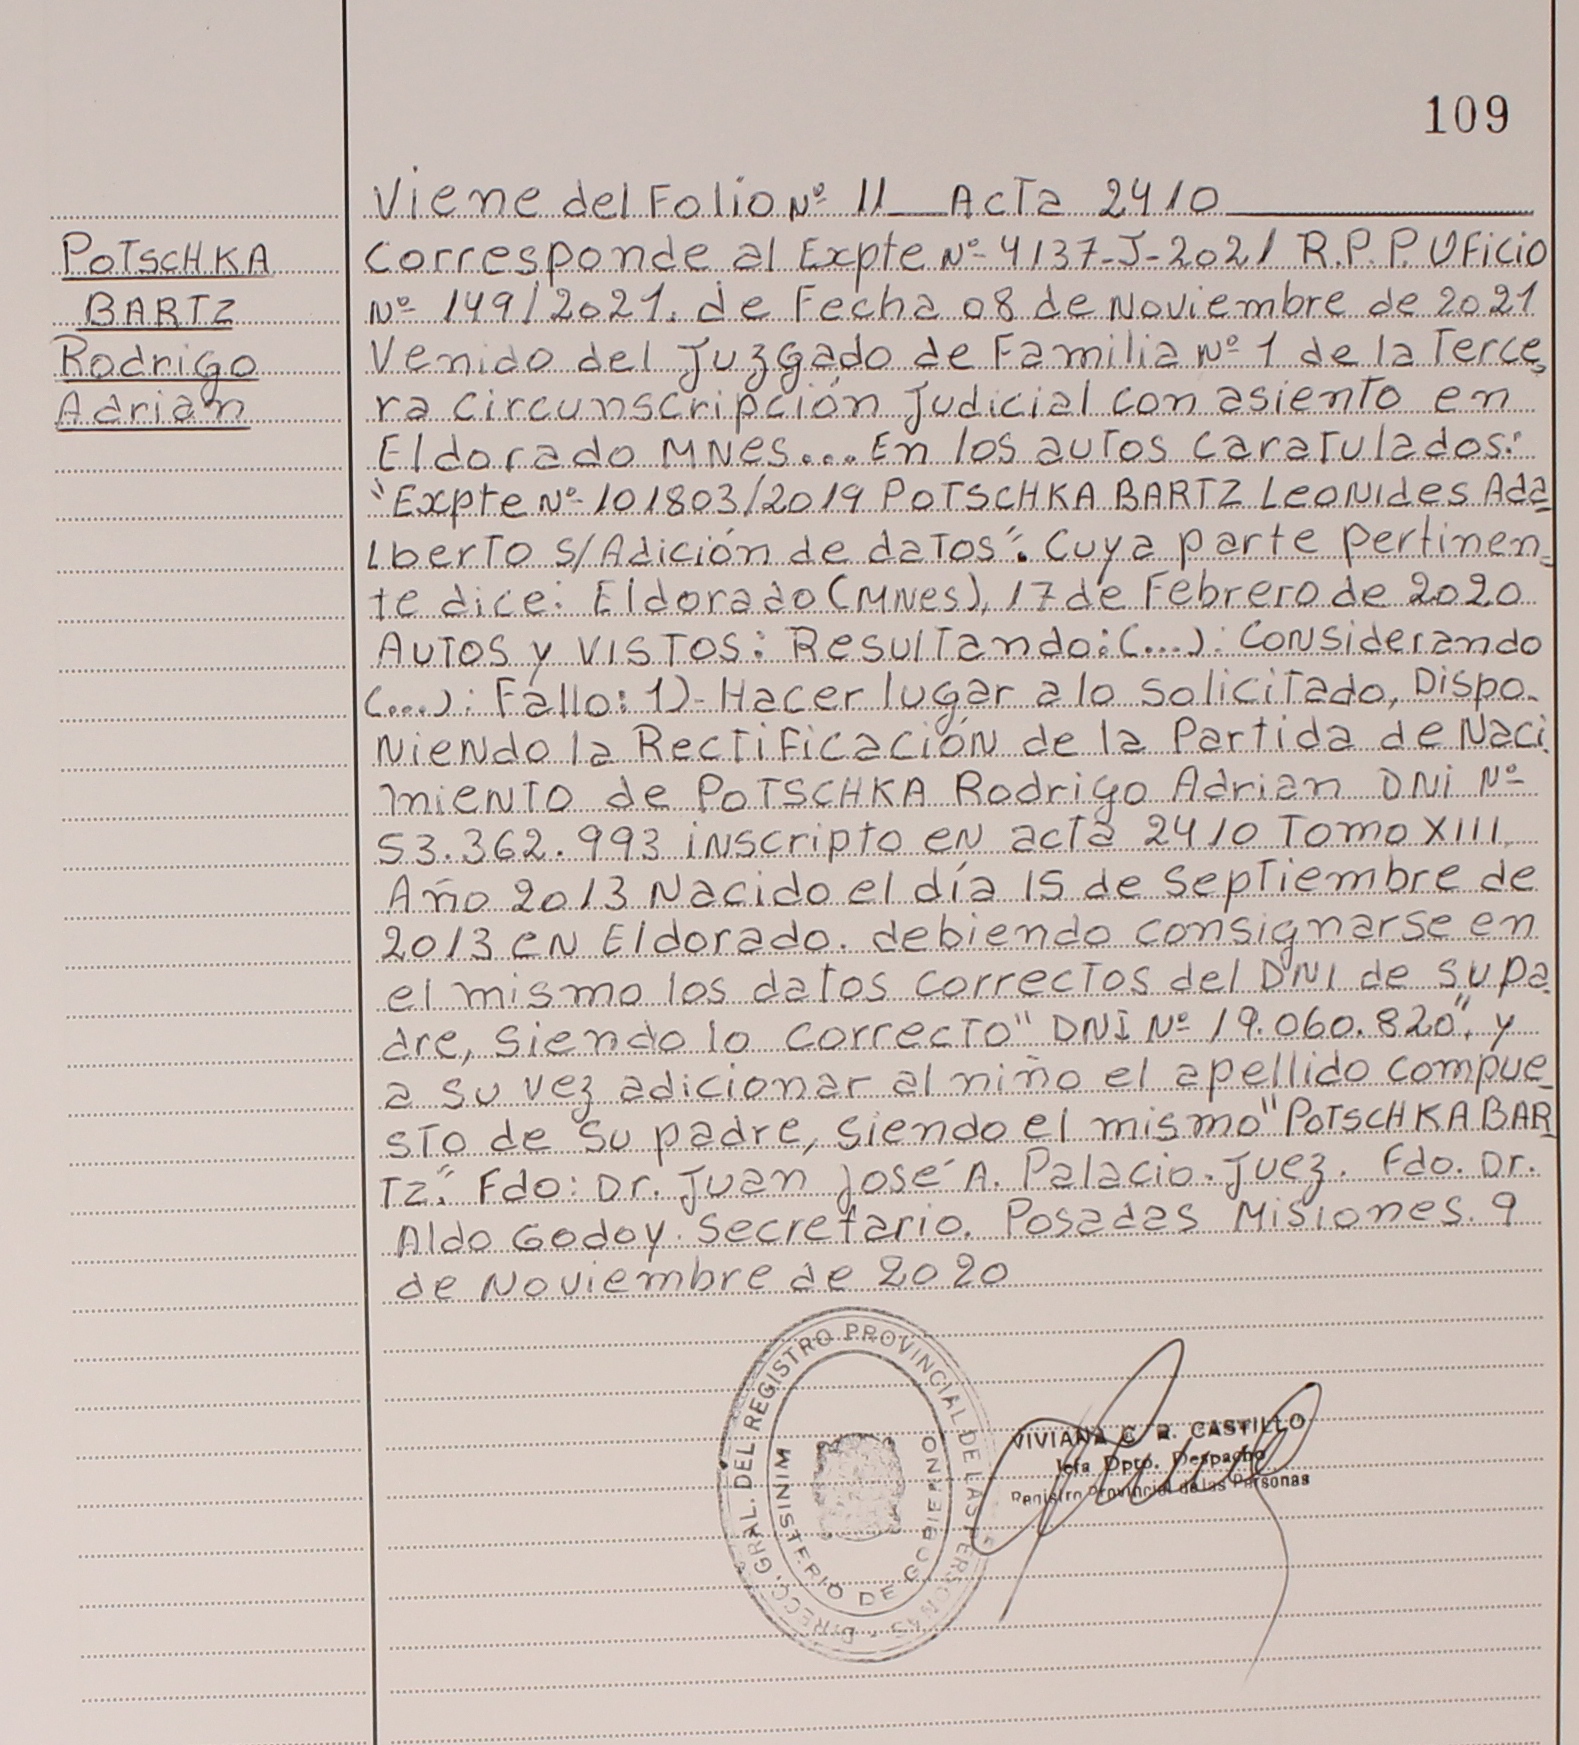 109
Viene del Folio Nº 11 Acta 2410
POTSCHKA
BARTZ
Rodrigo
Adrian
Corresponde al Expte Nº 4137-J-2021 R.P.P. Oficio
Nº 149/2021. de Fecha 08 de Noviembre de 2021
Venido del Juzgado de Familia Nº 1 de la Terce
ra Circunscripción Judicial con asiento en
Eldorado MNes... En los autos caratulados:
"Expte Nº 101803/2019 POTSCHKA BARTZ Leonides Ada
lberto s/Adición de datos". Cuya parte pertinen
te dice: Eldorado (MNes), 17 de Febrero de 2020
AUTOS y VISTOS: Resultando: (...): Considerando
(...): Fallo: 1)- Hacer lugar a lo solicitado, Dispo-
niendo la Rectificación de la Partida de Naci
miento de POTSCHKA Rodrigo Adrian DNI Nº
53.362.993 inscripto en acta 2410 Tomo XIII
Año 2013 Nacido el día 15 de Septiembre de
2013 en Eldorado. debiendo consignarse en
el mismo los datos correctos del DNI de su pa
dre, siendo lo correcto "DNI Nº 19.060.820", y
a su vez adicionar al niño el apellido compue
sto de su padre, siendo el mismo "POTSCHKA BAR
TZ". Fdo: Dr. Juan José A. Palacio. Juez. Fdo. Dr.
Aldo Godoy. Secretario. Posadas Misiones. 9
de Noviembre de 2020
DIRECC. GRAL. DEL REGISTRO PROVINCIAL DE LAS PERSONAS
MINISTERIO DE GOBIERNO
VIVIANA C. R. CASTILLO
Jefa Dpto. Despacho
Registro Provincial de las Personas